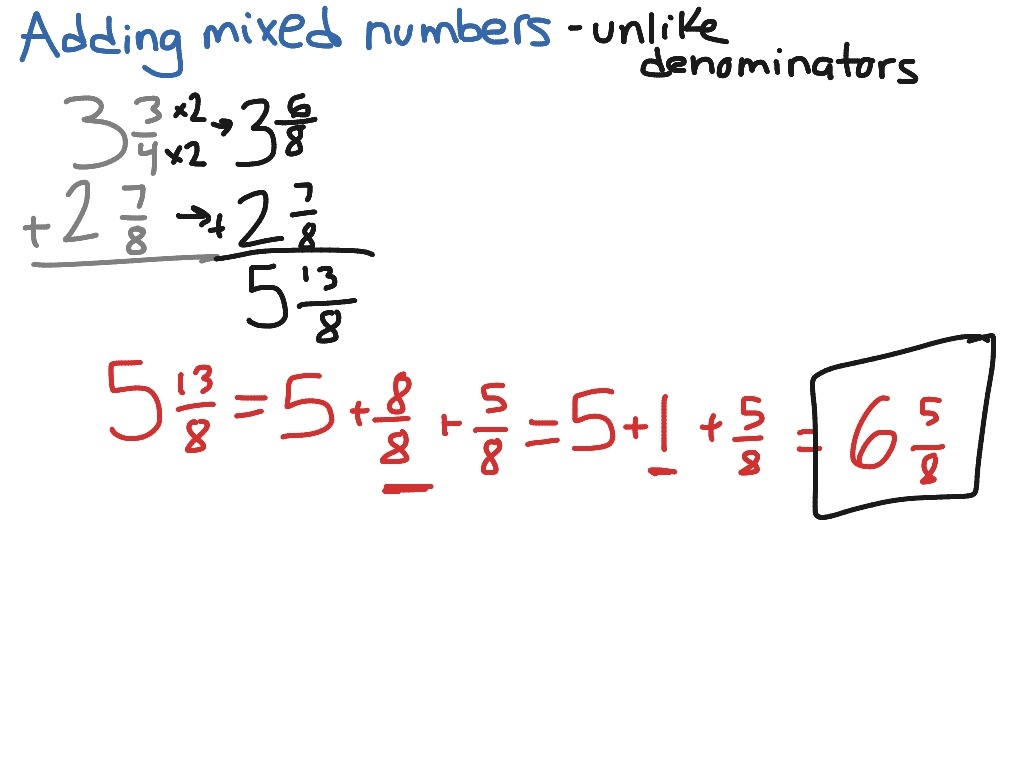 Adding mixed numbers - unlike denominators
3 3/4 ×2 ×2 → 3 6/8
+ 2 7/8 → + 2 7/8
5 13/8
5 13/8 = 5 + 8/8 + 5/8 = 5 + 1 + 5/8 = 6 5/8